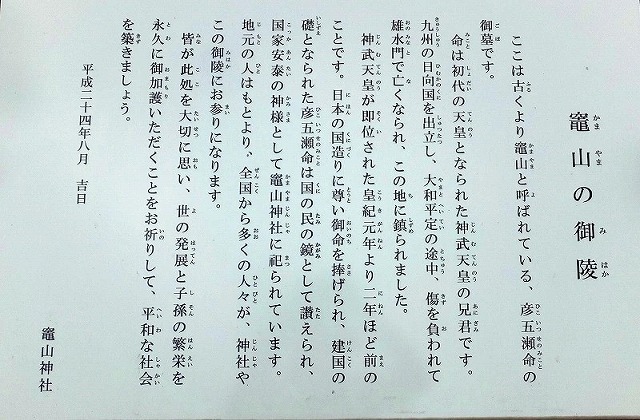 竈山の御陵
ここは古くより竈山と呼ばれている、彦五瀬命の
御墓です。
命は初代の天皇となられた神武天皇の兄君です。
九州の日向国を出立し、大和平定の途中、傷を負われて
雄水門で亡くなられ、この地に鎮られました。
神武天皇が即位された皇紀元年より二年ほど前の
ことです。日本の国造りに尊い御命を捧げられ、建国の
礎となられた彦五瀬命は国の民の鏡として讃えられ、
国家安泰の神様として竈山神社に祀られています。
地元の人はもとより、全国から多くの人々が、神社や
この御陵にお参りになります。
皆が此処を大切に思い、世の発展と子孫の繁栄を
永久に御加護いただくことをお祈りして、平和な社会
を築きましょう。
平成二十四年八月　吉日
竈山神社